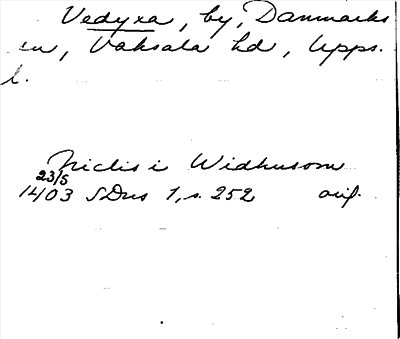 Vedyxa, by, Danmarks
sn, Vaksala hd, Upps.
l.
Niclis i Widhusom
23/5
1403 SDns 1, s. 252 orig.